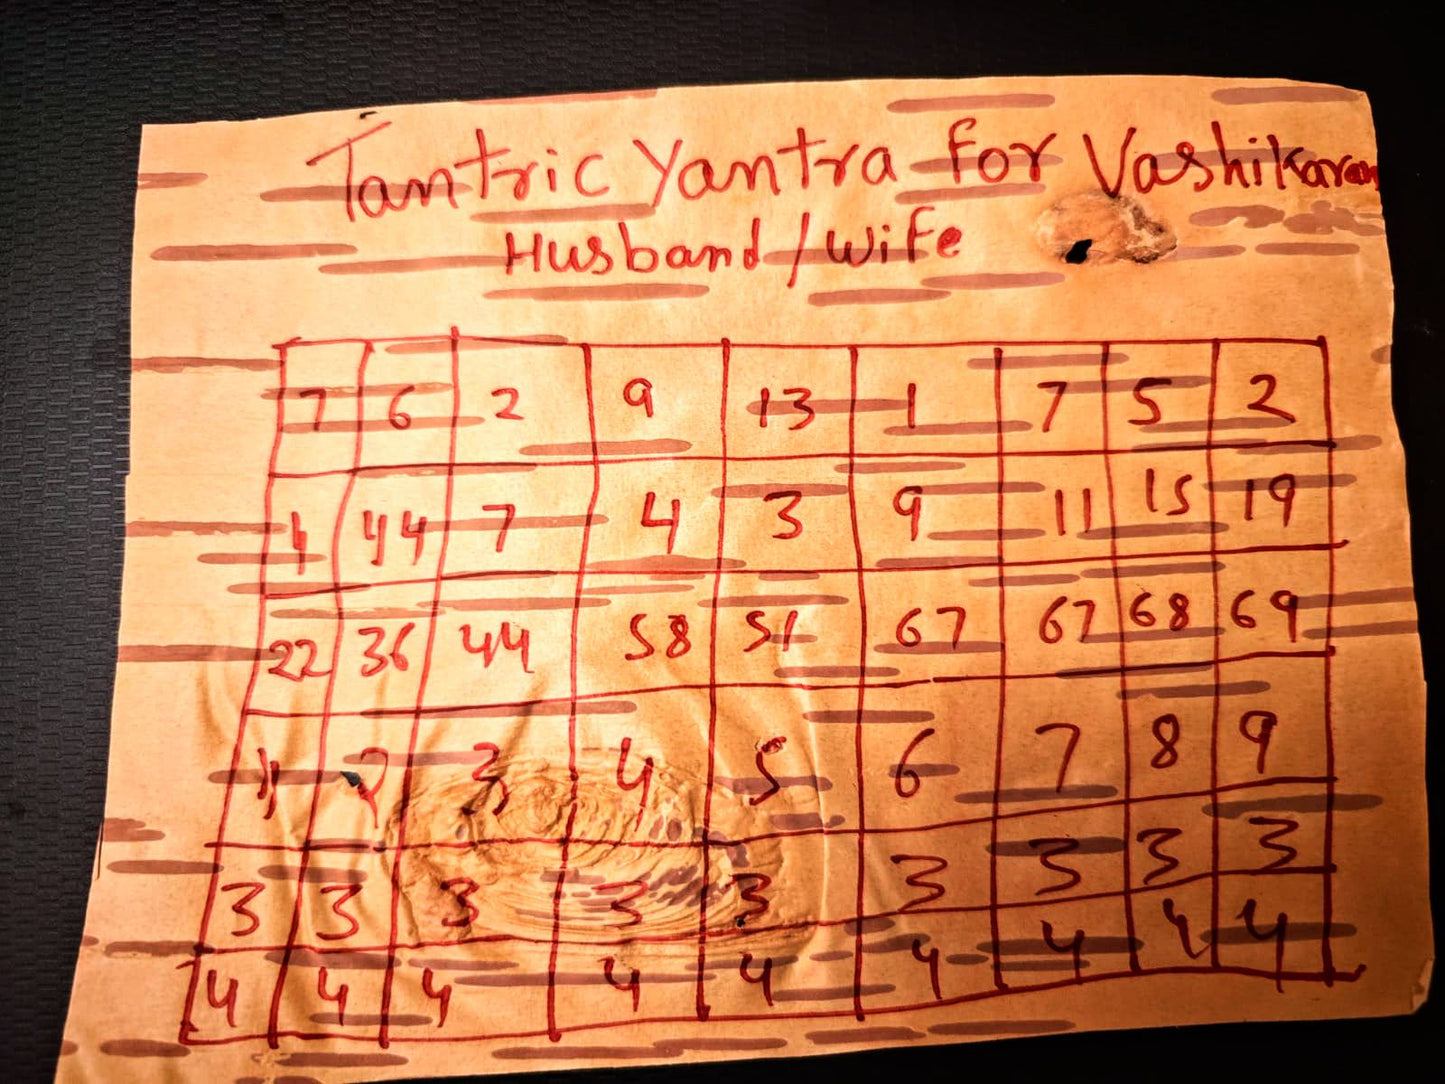 Tantric Yantra For Vashikaran
Husband/Wife
7 6 2 9 13 1 7 5 2
4 44 7 4 3 9 11 15 19
22 36 44 58 51 67 67 68 69
1 2 3 4 5 6 7 8 9
3 3 3 3 3 3 3 3 3
4 4 4 4 4 4 4 4 4